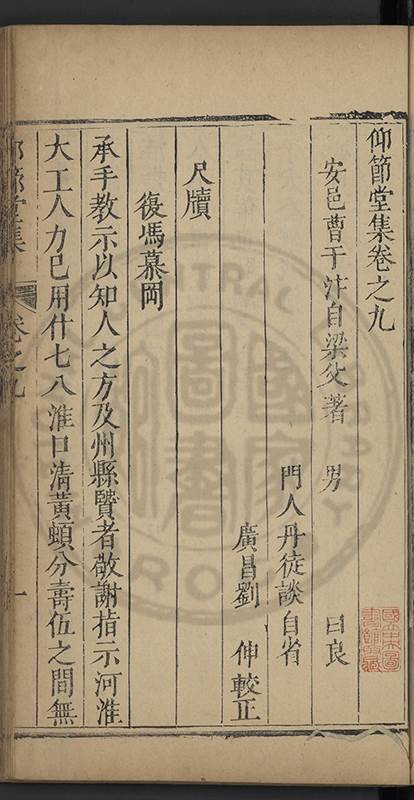 仰節堂集卷之九
安邑曹于汴自梁父著 男 曰良
門人丹徒談自省
廣昌劉 伸較正
尺牘
復馮慕岡
承手教示以知人之方及州縣賢者敬謝指示河淮
大工人力已用什七八淮口清黃頓分壽伍之間無
節堂集 卷之九 一